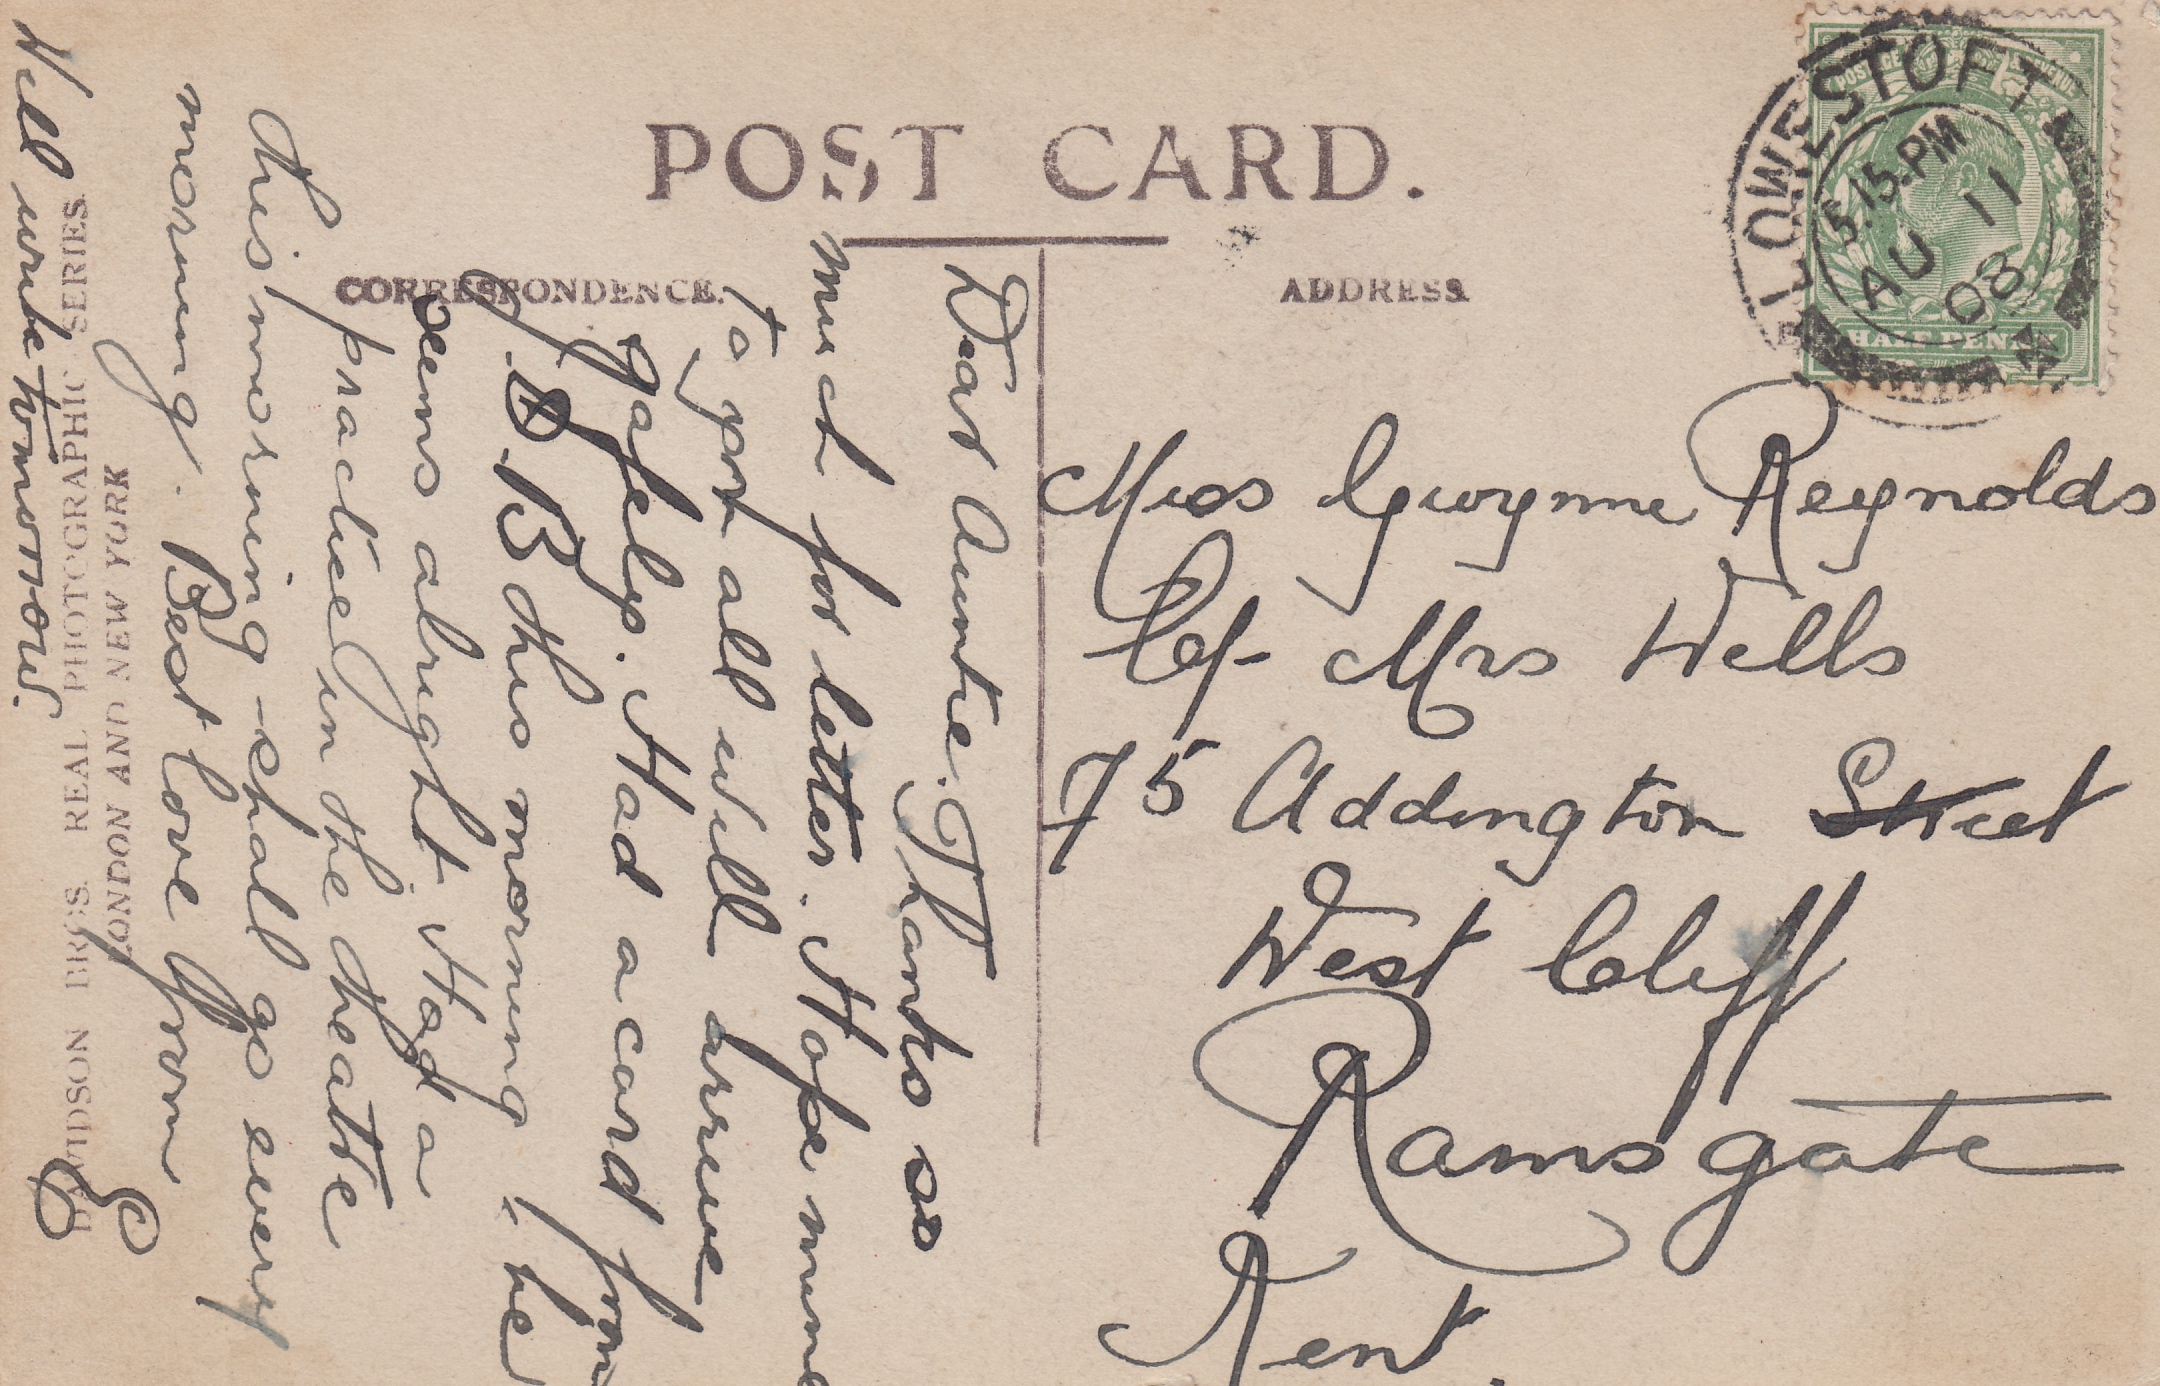 POST CARD.
CORRESPONDENCE.
ADDRESS
POSTAGE REVENUE
HALFPENNY
LOWESTOFT
5.15.PM
AU 11
08
Dear Auntie. Thanks so
much for letter. Hope mine
to you all will arrive
safely. Had a card from
B this morning - he
seems alright. Had a
practice in the theatre
this morning - shall go every
morning. Best love from
E
Will write tomorrow.
Miss Gwynne Reynolds
C/- Mrs Wells
75 Addington Street
West Cliff
Ramsgate
Kent.
DAVIDSON BROS. REAL PHOTOGRAPHIC SERIES.
LONDON AND NEW YORK